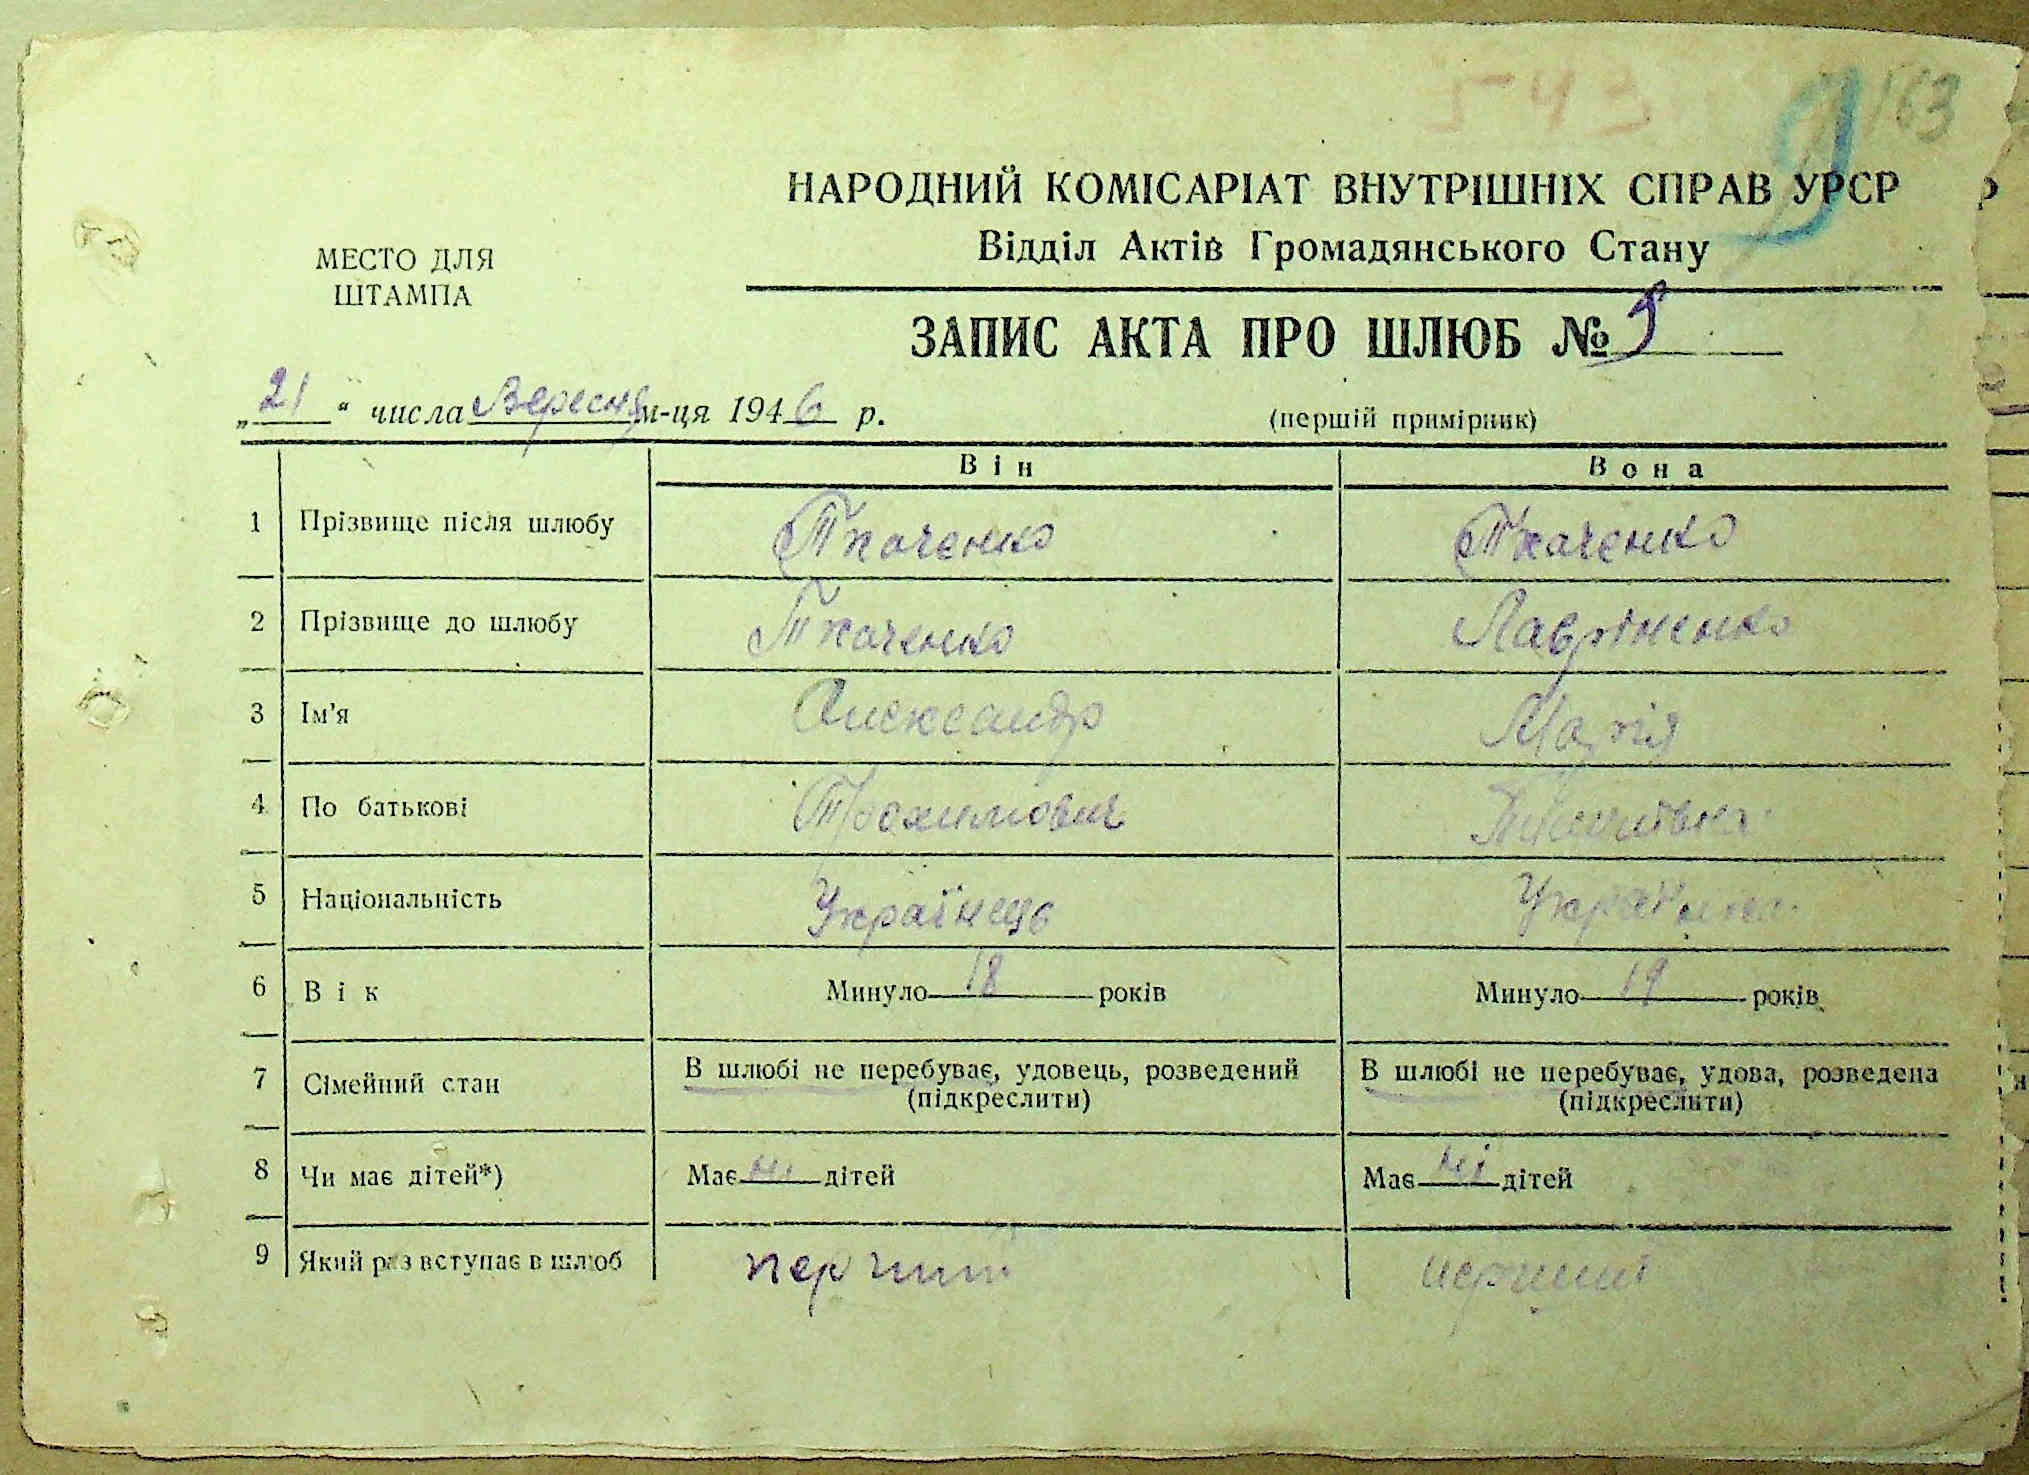 543
163
9
НАРОДНИЙ КОМІСАРІАТ ВНУТРІШНІХ СПРАВ УРСР
Відділ Актів Громадянського Стану
МЕСТО ДЛЯ
ШТАМПА
ЗАПИС АКТА ПРО ШЛЮБ № 9
„21“ числа Вересня м-ця 1946 р.
(першій примірник)
Він Вона
1 Прізвище після шлюбу Ткаченко Ткаченко
2 Прізвище до шлюбу Ткаченко Лавріненко
3 Ім'я Александр Марія
4 По батькові Трохимович
5 Національність Українець Українка
6 Вік Минуло 18 років Минуло 19 років
7 Сімейний стан В шлюбі не перебуває, удовець, розведений В шлюбі не перебуває, удова, розведена
(підкреслити) (підкреслити)
8 Чи має дітей*) Має ні дітей Має ні дітей
9 Який раз вступає в шлюб перший перший